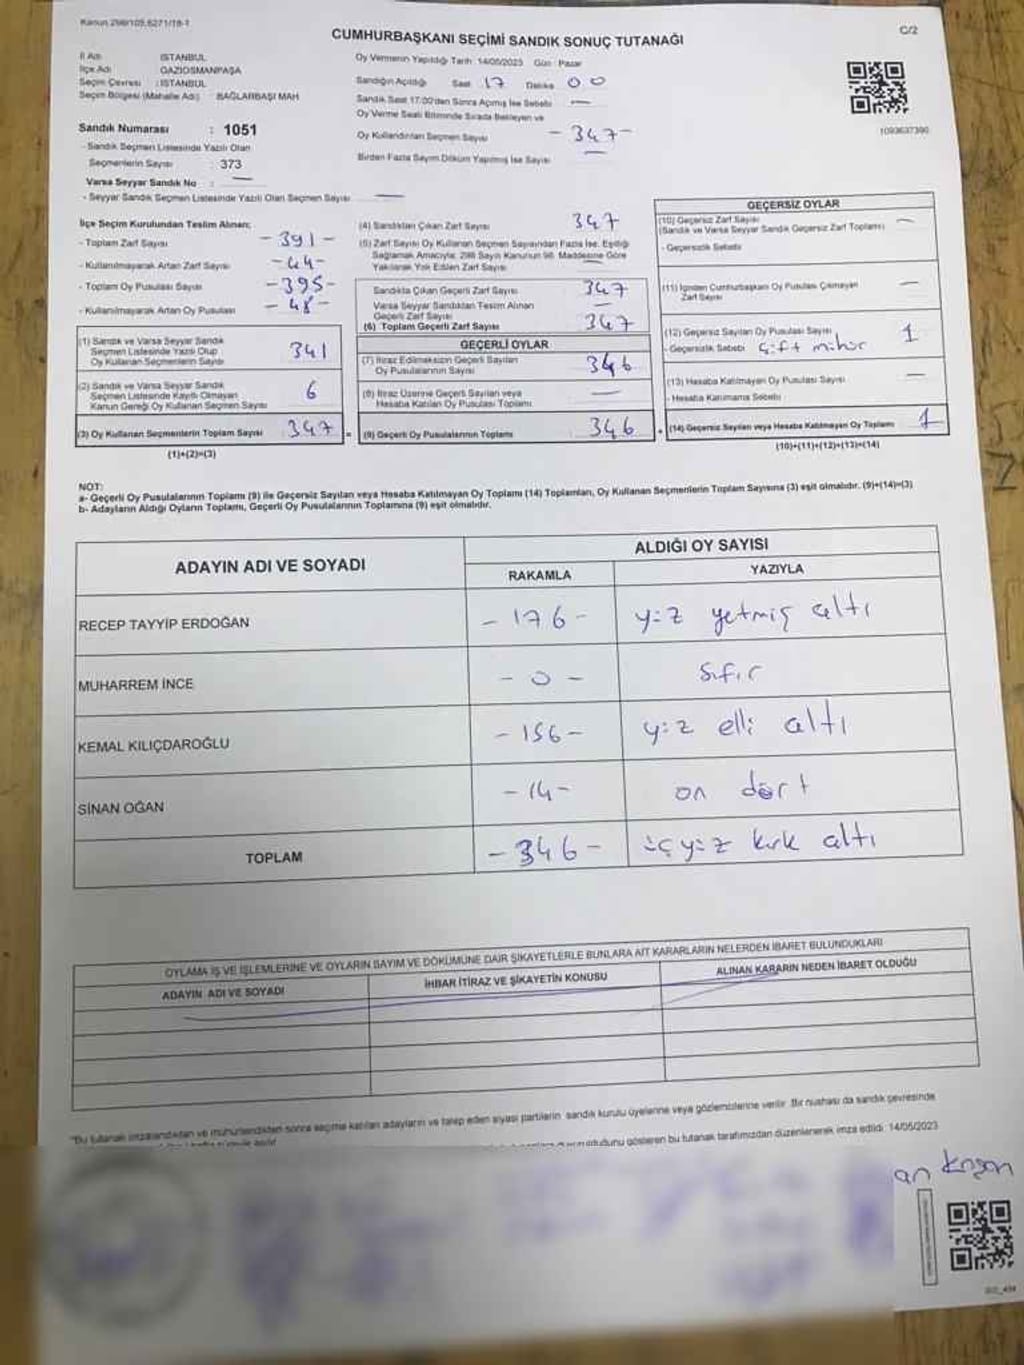 Kanun 298/105,6271/18-1
CUMHURBAŞKANI SEÇİMİ SANDIK SONUÇ TUTANAĞI
C/2
İl Adı İSTANBUL
İlçe Adı GAZİOSMANPAŞA
Seçim Çevresi : İSTANBUL
Seçim Bölgesi (Mahalle Adı) : BAĞLARBAŞI MAH
Sandık Numarası : 1051
- Sandık Seçmen Listesinde Yazılı Olan
Seçmenlerin Sayısı : 373
Varsa Seyyar Sandık No : —
- Seyyar Sandık Seçmen Listesinde Yazılı Olan Seçmen Sayısı —
Oy Vermenin Yapıldığı Tarih : 14/05/2023 Gün : Pazar
Sandığın Açıldığı Saat 17 Dakika 00
Sandık Saat 17.00'den Sonra Açılmış İse Sebebi —
Oy Verme Saati Bitiminde Sırada Bekleyen ve
Oy Kullandırılan Seçmen Sayısı - 347 -
Birden Fazla Sayım Döküm Yapılmış İse Sayısı —
1093637390
İlçe Seçim Kurulundan Teslim Alınan;
- Toplam Zarf Sayısı - 391 -
- Kullanılmayarak Artan Zarf Sayısı - 44 -
- Toplam Oy Pusulası Sayısı - 395 -
- Kullanılmayarak Artan Oy Pusulası - 48 -
(1) Sandık ve Varsa Seyyar Sandık
Seçmen Listesinde Yazılı Olup
Oy Kullanan Seçmenlerin Sayısı 341
(2) Sandık ve Varsa Seyyar Sandık
Seçmen Listesinde Kayıtlı Olmayan
Kanun Gereği Oy Kullanan Seçmen Sayısı 6
(3) Oy Kullanan Seçmenlerin Toplam Sayısı 347 =
(1)+(2)=(3)
(4) Sandıktan Çıkan Zarf Sayısı 347
(5) Zarf Sayısı Oy Kullanan Seçmen Sayısından Fazla İse, Eşitliği
Sağlamak Amacıyla; 298 Sayılı Kanunun 98. Maddesine Göre
Yakılarak Yok Edilen Zarf Sayısı —
Sandıkta Çıkan Geçerli Zarf Sayısı 347
Varsa Seyyar Sandıktan Teslim Alınan
Geçerli Zarf Sayısı —
(6) Toplam Geçerli Zarf Sayısı 347
GEÇERLİ OYLAR
(7) İtiraz Edilmeksizin Geçerli Sayılan
Oy Pusulalarının Sayısı 346
(8) İtiraz Üzerine Geçerli Sayılan veya
Hesaba Katılan Oy Pusulası Toplamı —
(9) Geçerli Oy Pusulalarının Toplamı 346 +
GEÇERSİZ OYLAR
(10) Geçersiz Zarf Sayısı —
(Sandık ve Varsa Seyyar Sandık Geçersiz Zarf Toplamı)
- Geçersizlik Sebebi
(11) İçinden Cumhurbaşkanı Oy Pusulası Çıkmayan
Zarf Sayısı —
(12) Geçersiz Sayılan Oy Pusulası Sayısı 1
- Geçersizlik Sebebi çift mühür
(13) Hesaba Katılmayan Oy Pusulası Sayısı —
- Hesaba Katılmama Sebebi
(14) Geçersiz Sayılan veya Hesaba Katılmayan Oy Toplamı 1
(10)+(11)+(12)+(13)=(14)
NOT:
a- Geçerli Oy Pusulalarının Toplamı (9) ile Geçersiz Sayılan veya Hesaba Katılmayan Oy Toplamı (14) Toplamları, Oy Kullanan Seçmenlerin Toplam Sayısına (3) eşit olmalıdır. (9)+(14)=(3)
b- Adayların Aldığı Oyların Toplamı, Geçerli Oy Pusulalarının Toplamına (9) eşit olmalıdır.
ADAYIN ADI VE SOYADI ALDIĞI OY SAYISI
RAKAMLA YAZIYLA
RECEP TAYYİP ERDOĞAN - 176 - yüz yetmiş altı
MUHARREM İNCE - 0 - sıfır
KEMAL KILIÇDAROĞLU - 156 - yüz elli altı
SİNAN OĞAN - 14 - on dört
TOPLAM - 346 - üçyüz kırk altı
OYLAMA İŞ VE İŞLEMLERİNE VE OYLARIN SAYIM VE DÖKÜMÜNE DAİR ŞİKAYETLERLE BUNLARA AİT KARARLARIN NELERDEN İBARET BULUNDUKLARI
ADAYIN ADI VE SOYADI İHBAR İTİRAZ VE ŞİKAYETİN KONUSU ALINAN KARARIN NEDEN İBARET OLDUĞU
"Bu tutanak imzalandıktan ve mühürlendikten sonra seçime katılan adayların ve talep eden siyasi partilerin sandık kurulu üyelerine veya gözlemcilerine verilir. Bir nüshası da sandık çevresinde
olduğunu gösteren bu tutanak tarafımızdan düzenlenerek imza edildi. 14/05/2023